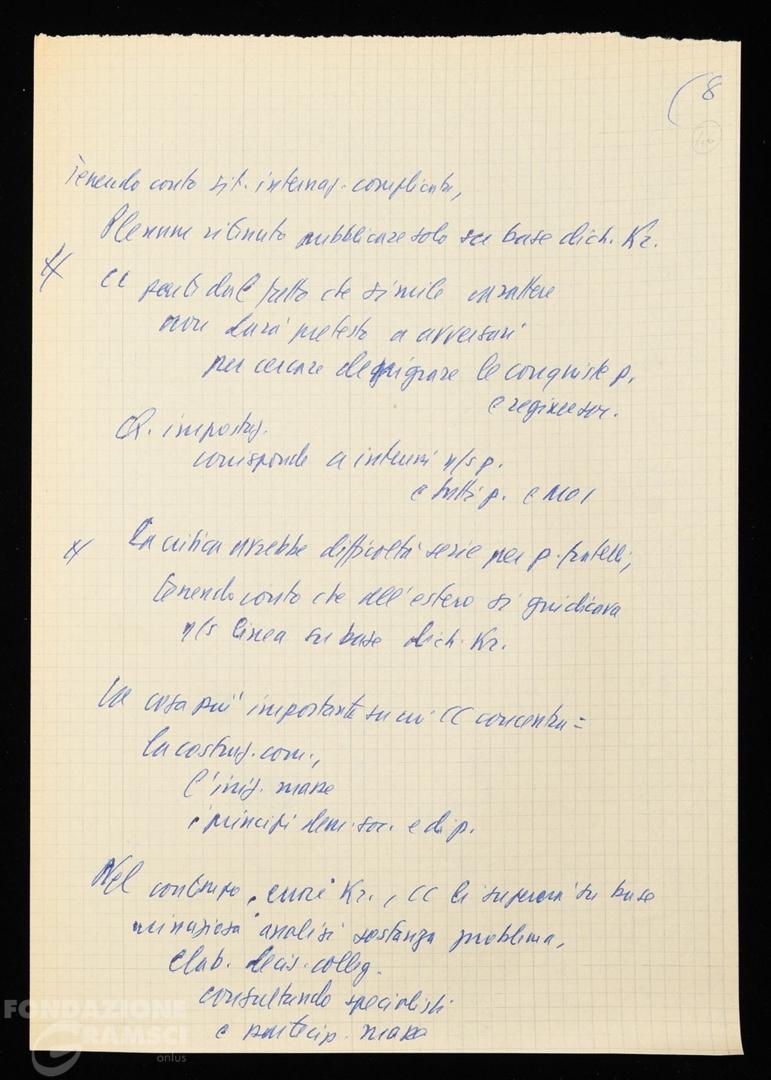 8
Tenendo conto sit. internaz. complicata,
Plenum ritenuto pubblicare solo su base dich. Kr.
CC parti dal fatto che simile carattere
non darà pretesto a avversari
per cercare denigrare le conquiste p.
e regime soc.
Q. impostaz.
corrisponde a interessi n/s p.
e tutti p. e MOI
La critica avrebbe difficoltà serie per p. fratelli,
tenendo conto che all'estero si giudicava
n/s linea su base dich. Kr.
La cosa più importante su cui CC concentra =
la costruz. com.,
l'iniz. masse
i principi dem. soc. e di p.
Nel contempo, errori Kr., CC li supererà su base
minuziosa analisi sostanza problema,
elab. decis. colleg.
consultando specialisti
e partecip. masse
FONDAZIONE
GRAMSCI
onlus